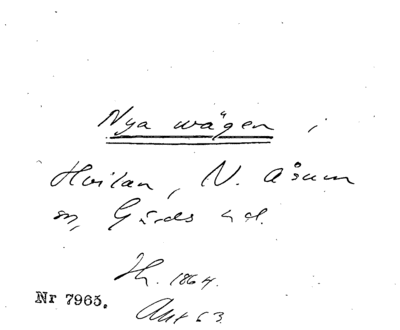 Nya wägen i
Hvilan, N. Åsum
sn, Gärds hd.
Jh. 1864.
Nr 7965.
Akt 63